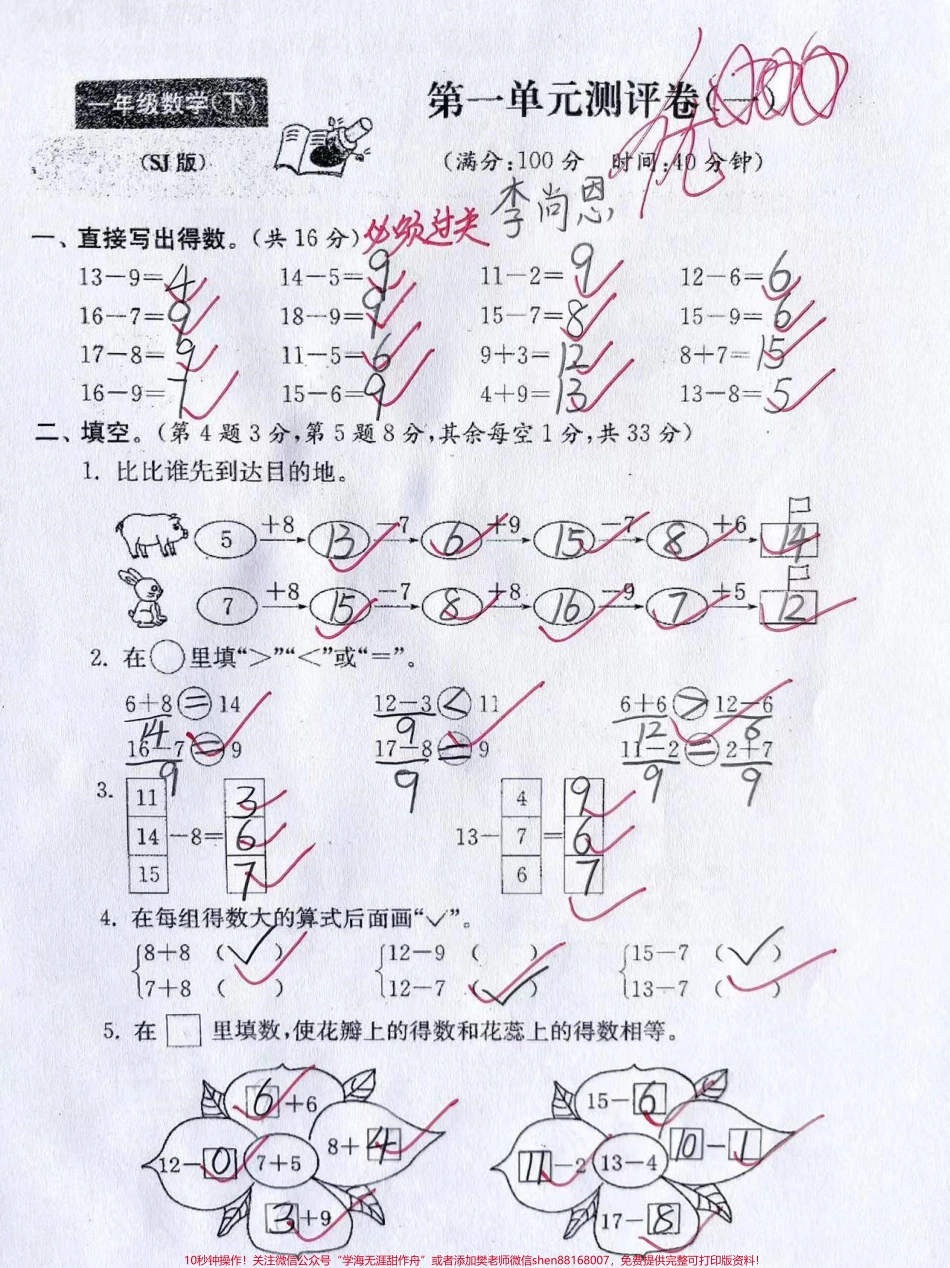 一年级数学(下)
第一单元测评卷(一)
优 100
(SJ版)
(满分:100分 时间:40分钟)
李尚恩
一、直接写出得数。(共16分) 必须过关
13-9=4 14-5=9 11-2=9 12-6=6
16-7=9 18-9=9 15-7=8 15-9=6
17-8=9 11-5=6 9+3=12 8+7=15
16-9=7 15-6=9 4+9=13 13-8=5
二、填空。(第4题3分,第5题8分,其余每空1分,共33分)
1. 比比谁先到达目的地。
5 +8 13 -7 6 +9 15 -7 8 +6 14
7 +8 15 -7 8 +8 16 -9 7 +5 12
2. 在○里填“>”“<”或“=”。
6+8=14 12-3<11 6+6>12-6
14 9 12 6
16-7=9 17-8=9 11-2=2+7
9 9 9 9
3. 11 3 4 9
14 -8= 6 13- 7 = 6
15 7 6 7
4. 在每组得数大的算式后面画“✓”。
8+8 (✓) 12-9 ( ) 15-7 (✓)
7+8 ( ) 12-7 (✓) 13-7 ( )
5. 在□里填数,使花瓣上的得数和花蕊上的得数相等。
6+6 15-6
12-0 7+5 8+4 11-2 13-4 10-1
3+9 17-8
10秒钟操作!关注微信公众号“学海无涯甜作舟”或者添加樊老师微信shen88168007,免费提供完整可打印版资料!